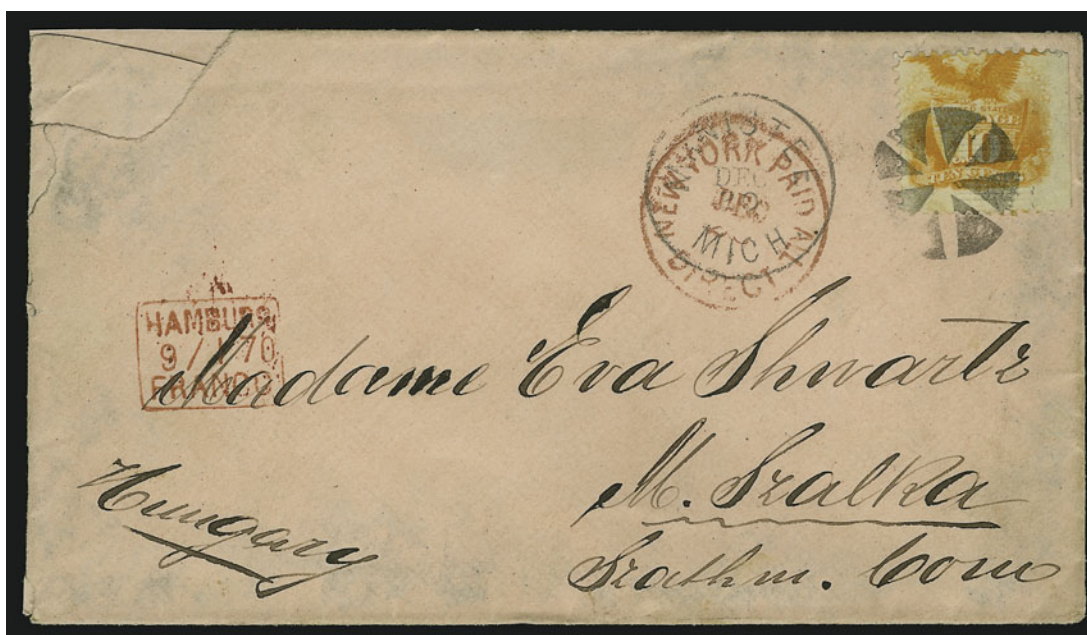 10
NEW YORK PAID ALL
DEC
MICH
DIRECT
HAMBURG
9 / 1 70
FRANCO
Madame Eva Shwartz
M. Szalka
Hungary
Szathm. Com